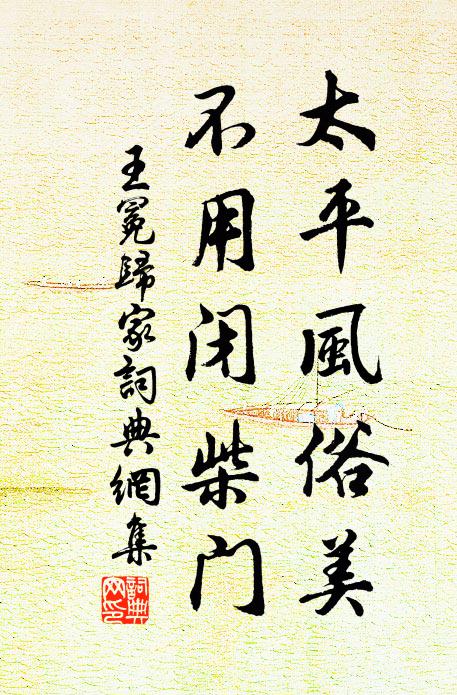 太平風俗美
不用闭柴门
王冕歸家詞典網集
詞典网印